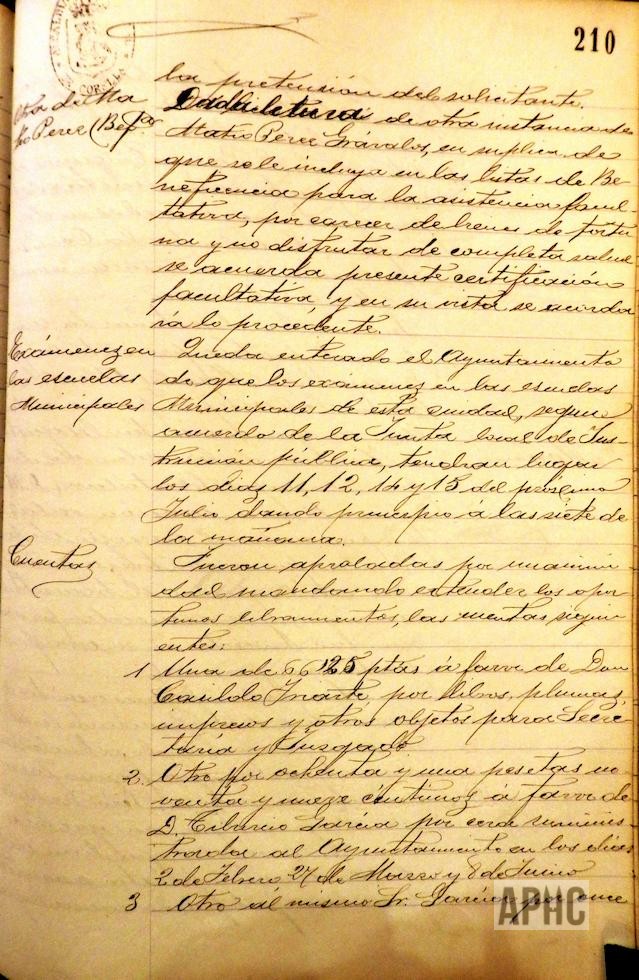 210
CORELLA
la pretensión del solicitante.
Otra de Ma
teo Perez (Bef.ª)
Dada lectura de otra instancia de
Mateo Perez Grávalos, en suplica de
que se le incluya en las listas de Be-
neficencia para la asistencia facul-
tativa, por carecer de bienes de fortu
na y no disfrutar de completa salud
se acuerda presente certificación
facultativa, y en su vista se acorda
rá lo procedente.
Exámenez en
las escuelas
Municipales
Queda enterado el Ayuntamiento
de que los exámenez en las escuelas
Municipales de esta ciudad, segun
acuerdo de la Junta local de Ins-
trucción pública, tendran lugar
los dias 11, 12, 14 y 15 del próximo
Julio dando principio á las siete de
la mañana.
Cuentas
Fueron aprobadas por unanimi-
dad mandando estender los opor-
tunos libramientos, las cuentas sigui-
entes:
1 Una de 66'25 ptas á favor de Don
Casildo Iriarte, por libros, plumas,
impresos y otros objetos para Secre-
taría y Juzgado
2. Otro por ochenta y una pesetas no
venta y nueve céntimos á favor de
D. Tiburcio García por cera suminis-
trada al Ayuntamiento en los dias
2 de Febrero 27 de Marzo y 8 de Junio
3 Otro al mismo Sr. García por once
APHC